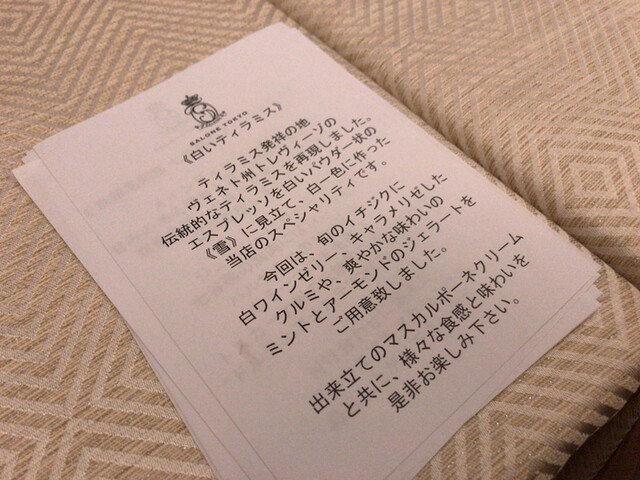 SALONE TOKYO
《白いティラミス》
ティラミス発祥の地
ヴェネト州トレヴィーゾの
伝統的なティラミスを再現しました。
エスプレッソを白いパウダー状の
《雪》に見立て、白一色に作った
当店のスペシャリティです。
今回は、旬のイチジクに
白ワインゼリー、キャラメリゼした
クルミや、爽やかな味わいの
ミントとアーモンドのジェラートを
ご用意致しました。
出来立てのマスカルポーネクリーム
と共に、様々な食感と味わいを
是非お楽しみ下さい。